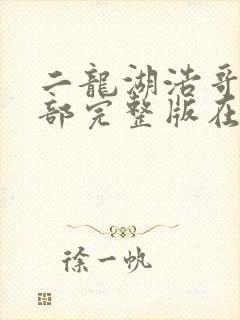 二龍湖浩哥
部完整版在
徐一帆